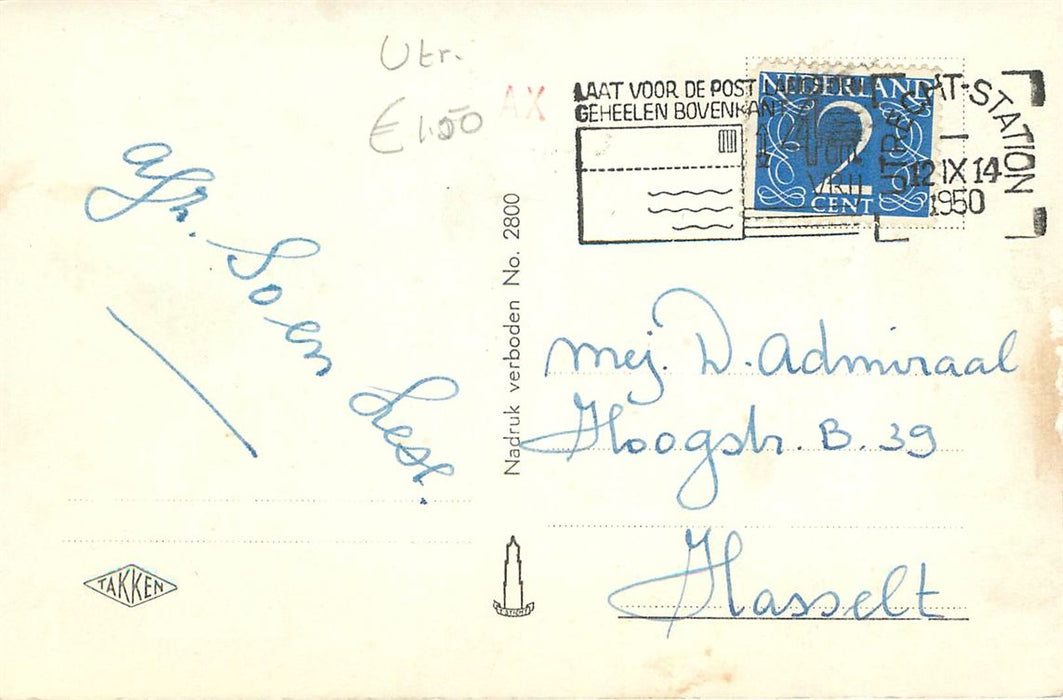 Utr.
€1.50
AX
LAAT VOOR DE POST
GEHEELEN BOVENKANT
4 cm
VRIJ
NEDERLAND
2
CENT
UTRECHT-STATION
12 IX 14
1950
Afz. Soen
Nadruk verboden No. 2800
mej. D. Admiraal
Hoogstr. B. 39
Hasselt
TAKKEN